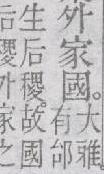 外家國。
大雅
有邰
生后稷。故國
后稷外家之